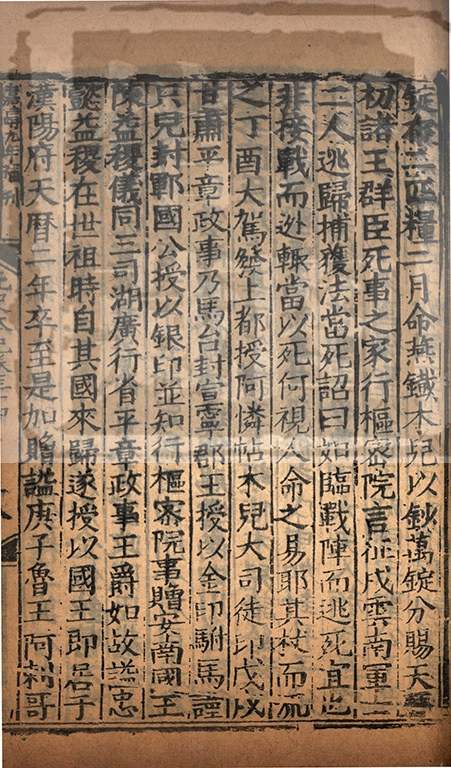 錠布三匹糧二月命燕鐵木兒以鈔萬錠分賜天曆
初諸王群臣死事之家行樞密院言征戍雲南軍士
二人逃歸捕獲法當死詔曰如臨戰陣而逃死宜也
非接戰而逃輒當以死何視人命之易耶其杖而流
之丁酉大駕發上都授阿憐帖木兒大司徒印戊戌
甘肅平章政事乃馬台封宣寧郡王授以金印駙馬謹
只兒封鄆國公授以銀印並知行樞密院事贈安南國王
陳益稷儀同三司湖廣行省平章政事王爵如故諡忠
懿益稷在世祖時自其國來歸遂授以國王即居于
漢陽府天曆二年卒至是加贈諡庚子魯王阿剌哥
嘉靖九年補刊